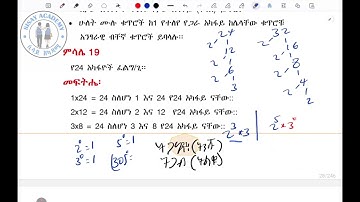 NISAY ACADEMY
• ሁለት ሙሉ ቁጥሮች ከ1 የተለየ የጋራ አካፋይ ከሌላቸው ቁጥሮቹ
አንፃራዊ ብቸኛ ቁጥሮች ይባላሉ፡፡
ምሳሌ 19
የ24 አካፋዮች ፈልግ/ጊ፡፡
መፍትሔ፡
1x24 = 24 ስለሆነ 1 እና 24 የ24 አካፋይ ናቸው::
2x12 = 24 ስለሆነ 2 እና 12 የ24 አካፋይ ናቸው::
3x8 = 24 ስለሆነ 3 እና 8 የ24 አካፋይ ናቸው::
24
2 12
2 6
2 3
32
2 16
2 8
2 4
2
2³*3
2⁵*3⁰
2⁰=1
5⁰=1
3⁰=1
(30)⁰=